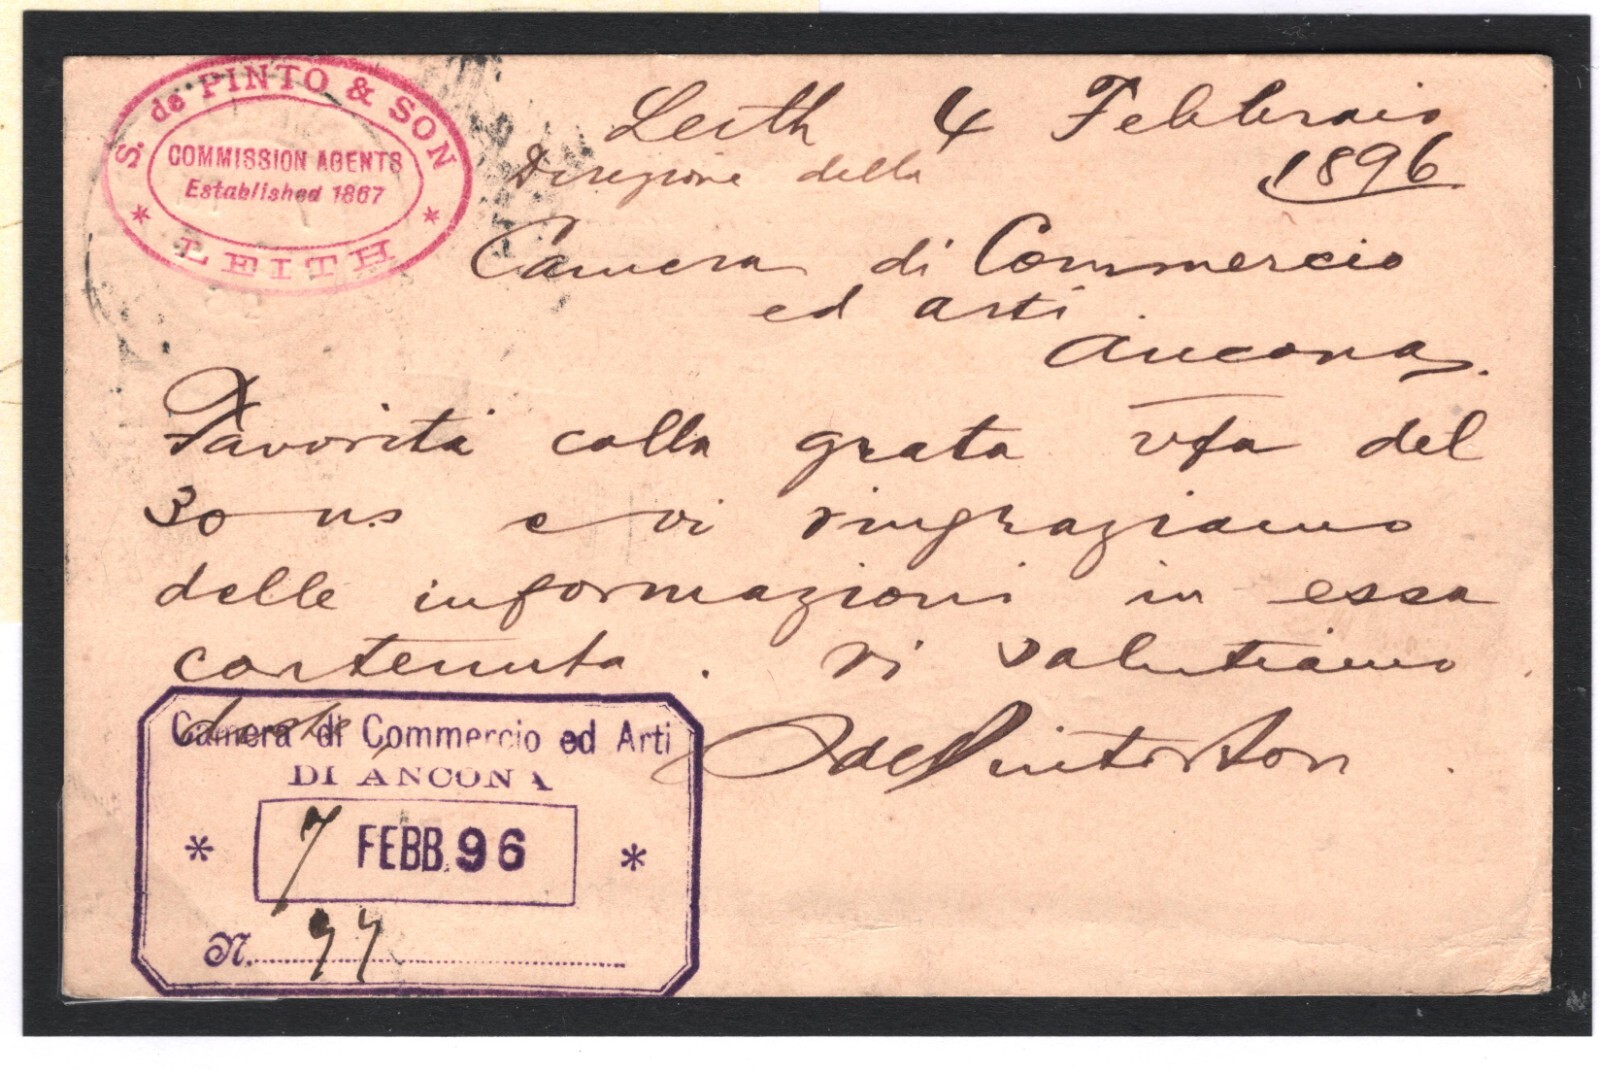 S. de PINTO & SON
COMMISSION AGENTS
Established 1867
* LEITH *
Leith 4 Febbraio
1896
Direzione della
Camera di Commercio
ed arti
Ancona.
Favoriti colla grata vsa del
30 u.s e vi ringraziamo
delle informazioni in essa
contenuta. Vi salutiamo
Camera di Commercio ed Arti
DI ANCONA
* 7 FEBB. 96 *
N.
S de Pinto & Son